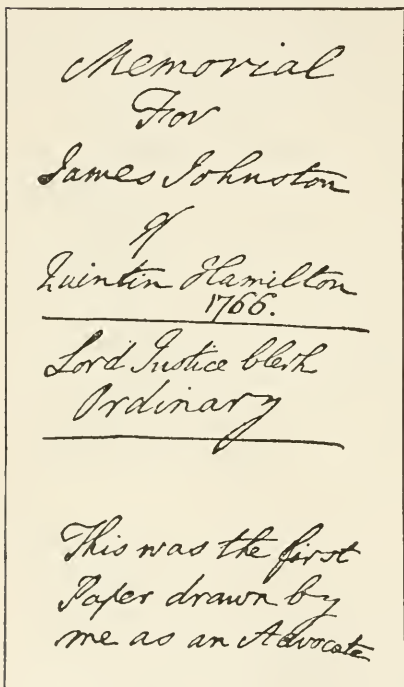 Memorial
For
James Johnston
of
Quintin Hamilton
1766.
Lord Justice Clerk
Ordinary
This was the first
Paper drawn by
me as an Advocate